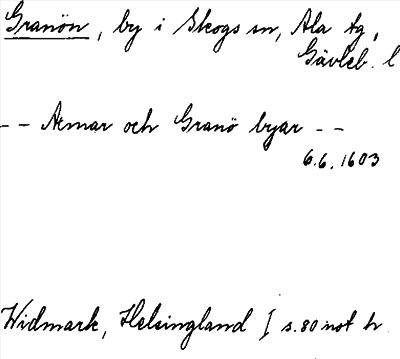 Granön, by i Skogs sn, Ala tg,
Gävleb. l
-- Acmar och Granö byar --
6.6.1603
Widmark, Helsingland I s. 80 not h